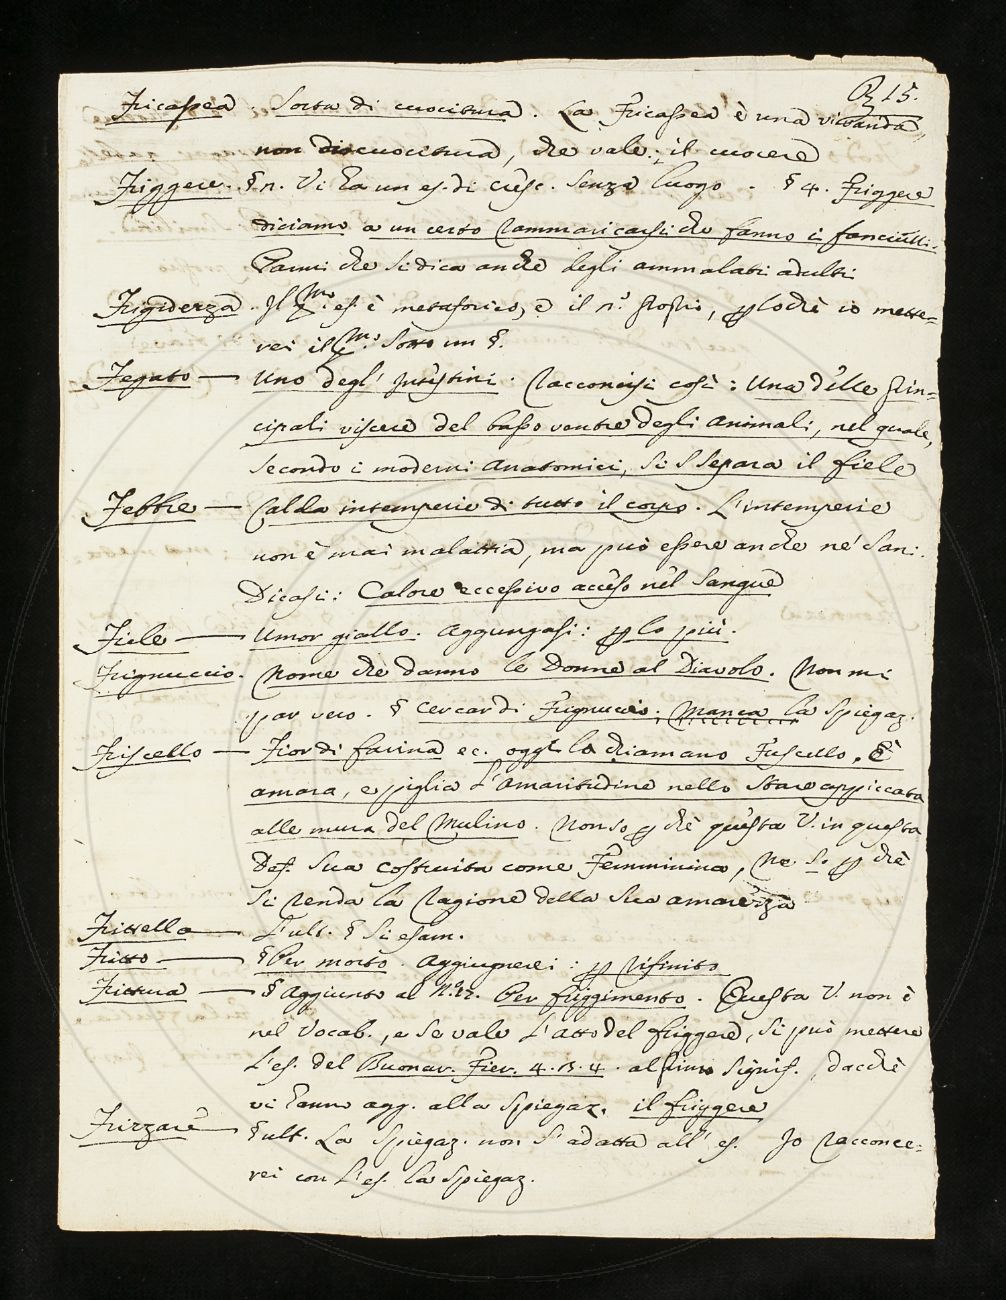 15.
Fricassea. Sorta di cuocitura. La Fricassea è una vivanda
non cuocitura, che vale: il cuocere
Friggere. § n. Vi ha un es. di Cresc. senza luogo. § 4. Friggere
diciamo a un certo rammaricarsi che fanno i fanciulli.
Parmi che si dica anche degli ammalati adulti
Frigidezza. Il es. è metaforico, e il n.° proprio, lochè io mette=
rei il Sotto un §.
Fegato — Uno degl' Intestini. Racconcisi così: Una delle prin=
cipali viscere del basso ventre degli animali, nel quale,
secondo i moderni Anatomici, si separa il fiele
Febbre — Calda intemperie di tutto il corpo. L'intemperie
non è mai malattia, ma può essere anche ne' sani.
Dicasi: Calore eccessivo acceso nel Sangue
Fiele — Umor giallo. Aggiungasi: lo più.
Frignuccio. Nome che danno le Donne al Diavolo. Non mi
par vero. § Cercar di Frignuccio. Manca la Spiegaz.
Friscello — Fior di farina ec. oggi lo chiamano Fuscello. È
amara, e piglia l'amaritudine nello stare appiccata
alle mura del Mulino. Non so chè questa V. in questa
Def. sia costruita come Femminina, Ne so chè
si renda la ragione della sua amarezza
Frittella — L'ult. § Si esam.
Fritto — § Per morto. Aggiugnerei: rifinito
Frittura — § Aggiunto al Per friggimento. Questa V. non è
nel Vocab., e se vale l'atto del friggere, si può mettere
l'es. del Buonar. Fier. 4. 4. al primo Signif., dacchè
vi hanno agg. alla Spiegaz. il friggere
Frizzare — § ult. La Spiegaz. non s'adatta all' es. Io racconce=
rei con l'es. la Spiegaz.